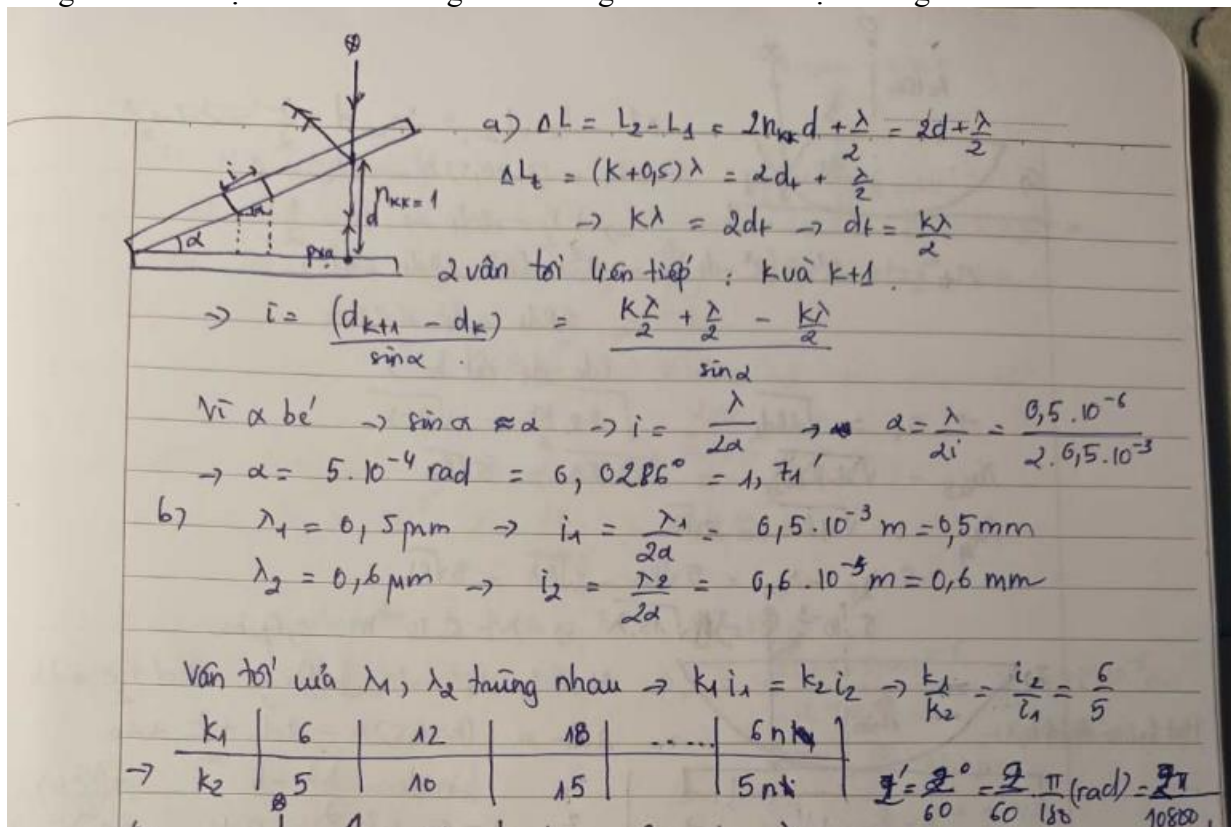 a) ΔL = L₂ - L₁ = 2n_kk d + λ/2 = 2d + λ/2
ΔL_t = (k+0,5)λ = 2d_t + λ/2
→ kλ = 2d_t → d_t = kλ/2
i
d
n_kk = 1
α
2 vân tối liên tiếp : k và k+1.
⇒ i = (d_{k+1} - d_k)/sinα = (kλ/2 + λ/2 - kλ/2)/sinα
Vì α bé → sinα ≈ α → i = λ/2α → α = λ/2i = 0,5.10⁻⁶/2.0,5.10⁻³
→ α = 5.10⁻⁴ rad = 0,0286° = 1,71'
b) λ₁ = 0,5μm → i₁ = λ₁/2α = 0,5.10⁻³ m = 0,5mm
λ₂ = 0,6μm → i₂ = λ₂/2α = 0,6.10⁻³ m = 0,6 mm
Vân tối của λ₁, λ₂ trùng nhau → k₁i₁ = k₂i₂ → k₁/k₂ = i₂/i₁ = 6/5
k₁ | 6 | 12 | 18 | ..... | 6n
→ k₂ | 5 | 10 | 15 | 5n